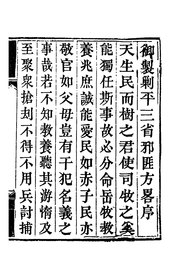 御製剿平三省邪匪方畧序
天生民而樹之君使司牧之奚
能獨任斯事故必分命岳牧教
養兆庶誠能愛民如赤子民亦
敬官如父母豈有干犯名義之
事哉若不知教養聽其游惰及
至聚衆搶刼不得不用兵討捕